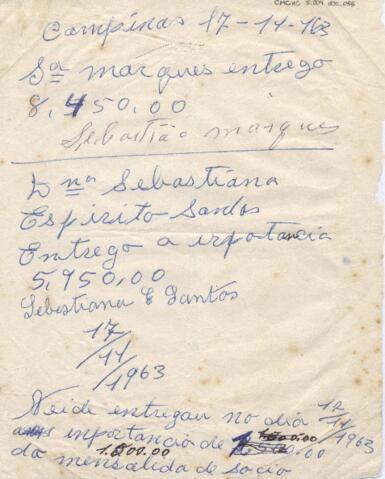 CMCHC 5.004.000.055
Campinas 17-11-963
Sª marques entrego
8,450,00
Sebastião marques
D nª Sebastiana
Espirito Santos
Entrego a irportancia
5,950,00
Sebastiana E Santos
17
/11
/1963
Neide entregau no dia 17/11/1963
importancia de 1.500.00
da mensalida de socio